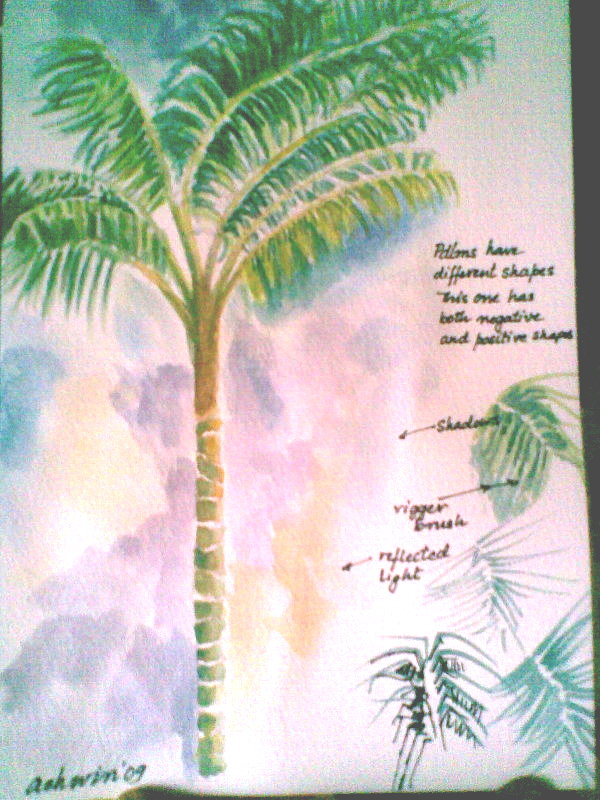 Palms have
different shapes
This one has
both negative
and positive shapes
Shadows
rigger
brush
reflected
light
ashwin'09